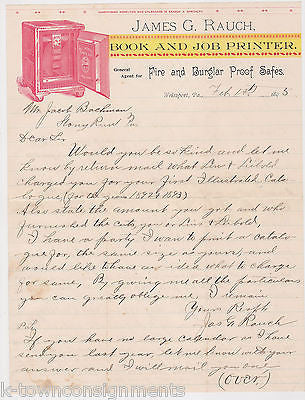 JAMES G. RAUCH,
BOOK AND JOB PRINTER.
General Agent for Fire and Burglar Proof Safes.
Weissport, Pa. Feb 1893
Mr. Jacob Bachman
Stony Run Pa
Dear Sir
Would you be so kind and let me
know by return mail what
charged you for your First Illustrated Cata-
logue (for the year 1892 & 1893)
Also state the amount you got and who
furnished the cuts, you or
I have a party I want to print a catalo-
gue for, the same size as yours, and
would like to have an idea what to charge
for same. By giving me all the particulars
you can greatly oblige me. I remain
Yours Respt.
Jas G Rauch
P.S.
If you have no large calendar as I have
sent you last year, let me know with your
answer and I will mail you one
(over)
k-townconsignments